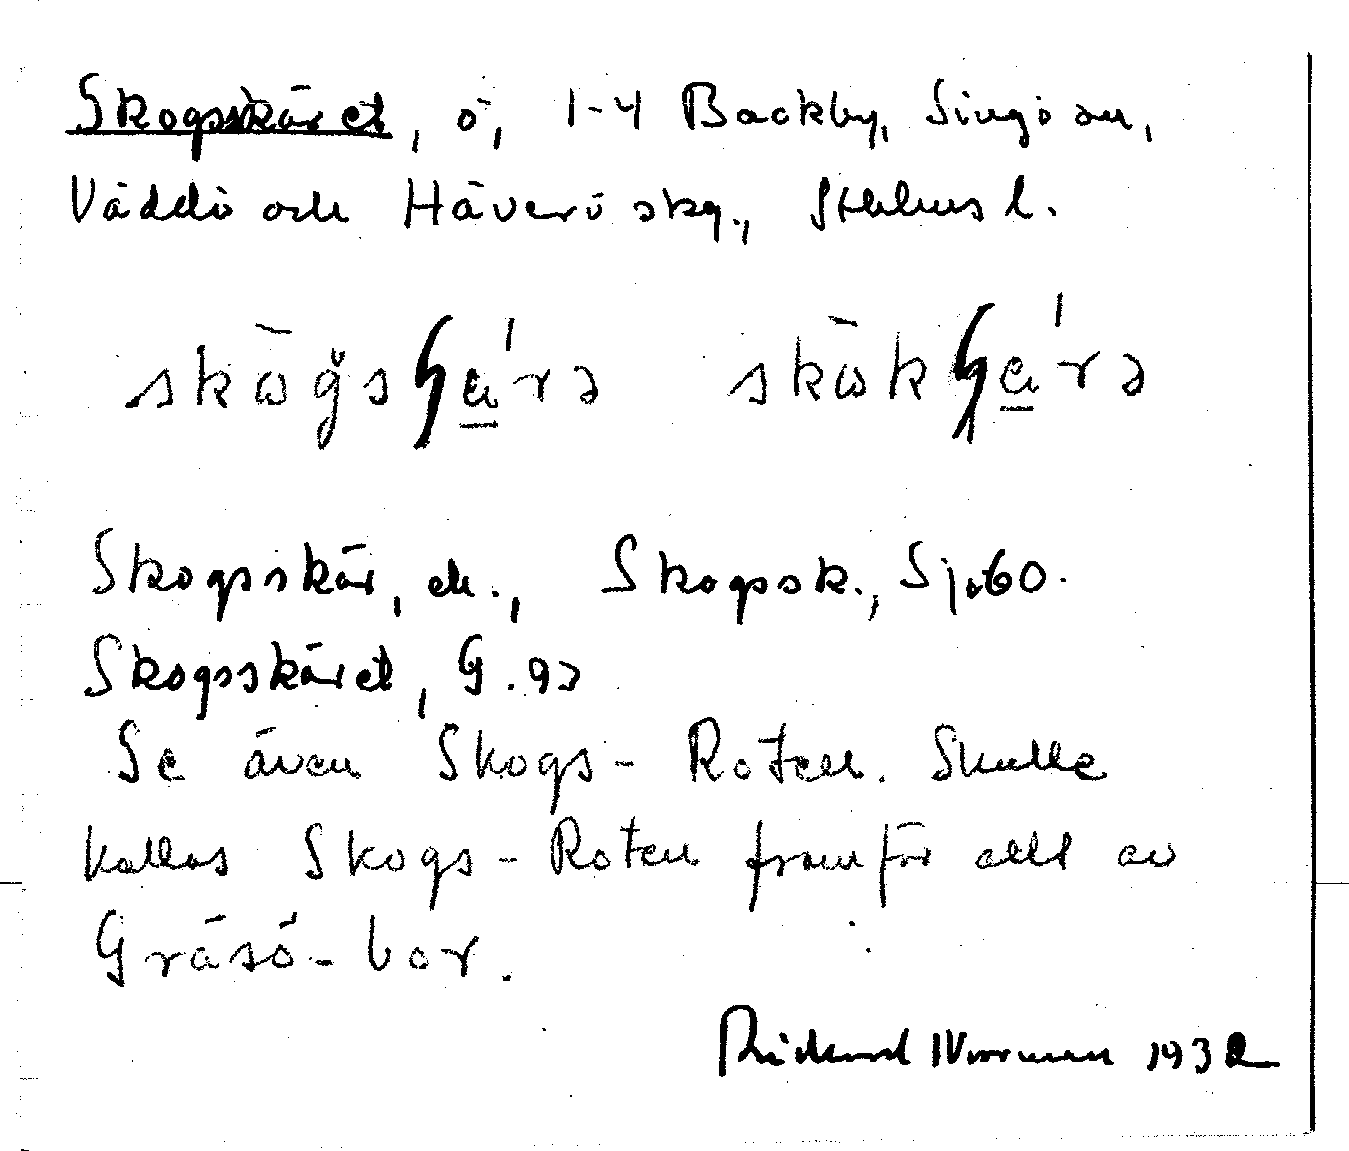 Skogsskäret, ö, 1-4 Backby, Singö sn,
Väddö och Häverö skg., Sthlms l.
Skogsskär, ek., Skogssk., Sj. 60.
Skogsskäret, G. 93
Se även Skogs-Roten. Skulle
kallas Skogs-Roten framför allt av
Gräsö-bor.
Rickard Norrman 1932